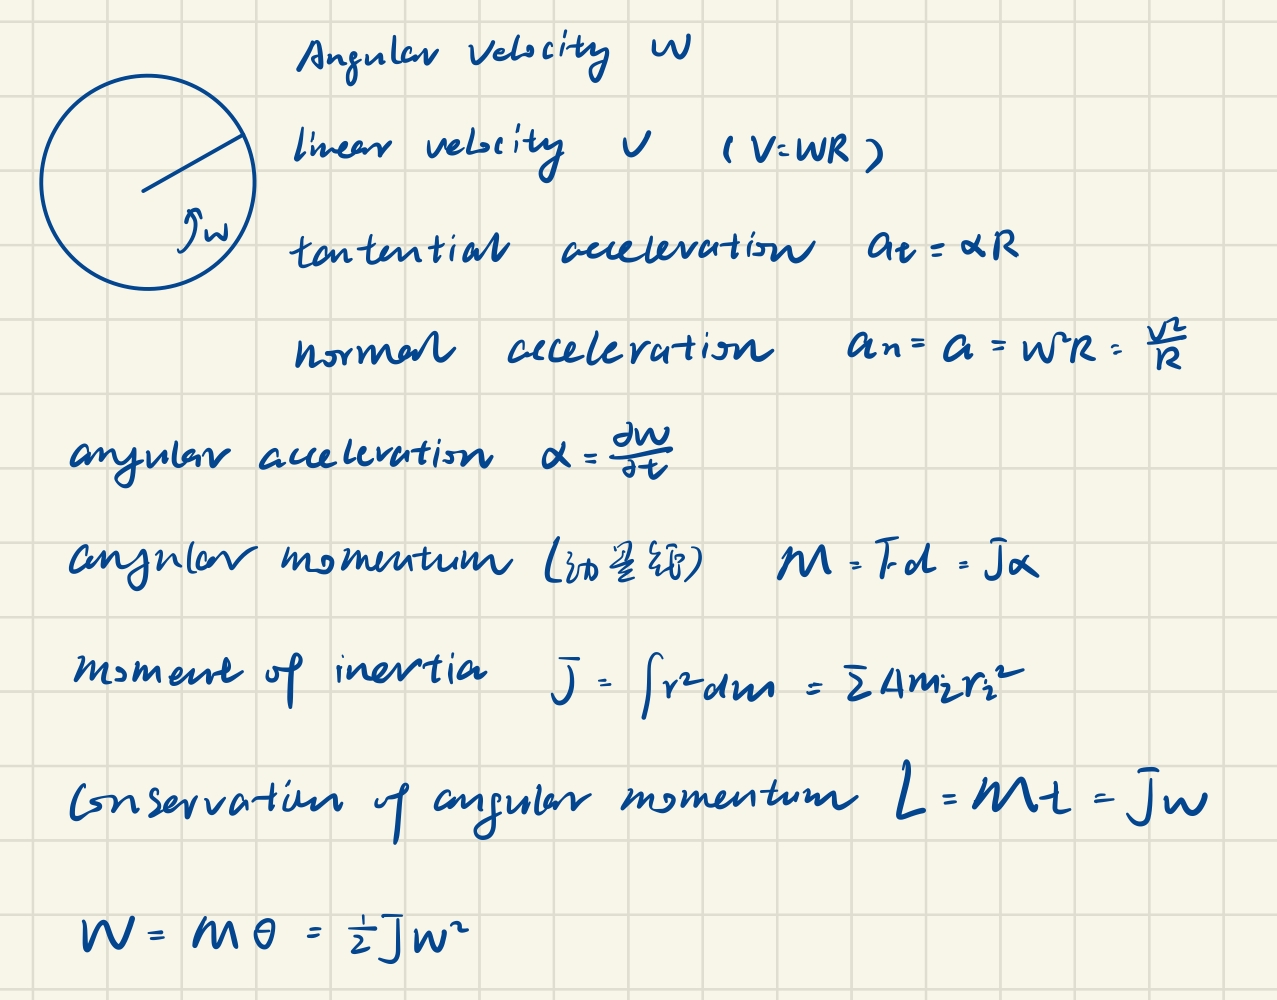 Angular velocity w
linear velocity v (V=WR)
w
tantential acceleration at = αR
normal acceleration an = a = w²R = v²/R
angular acceleration α = ∂w/∂t
angular momentum M = Fd = Jα
moment of inertia J = ∫r²dm = ΣΔmiri²
Conservation of angular momentum L = Mt = Jw
W = Mθ = 1/2Jw²